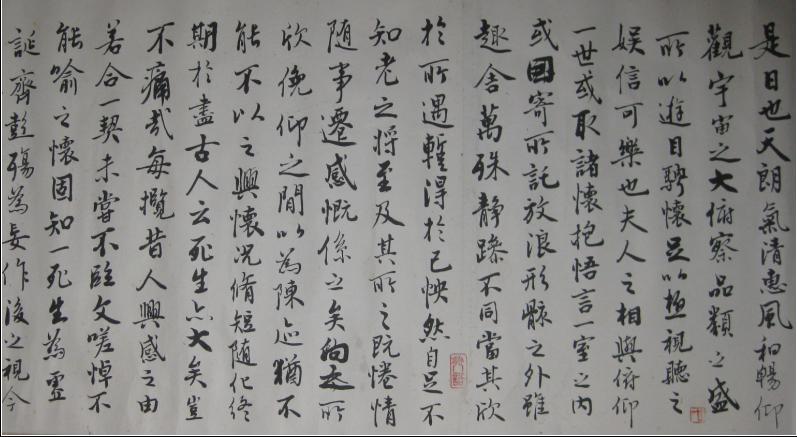 是日也天朗氣清惠風和暢仰
觀宇宙之大俯察品類之盛
所以遊目騁懷足以極視聽之
娛信可樂也夫人之相與俯仰
一世或取諸懷抱悟言一室之內
或因寄所託放浪形骸之外雖
趣舍萬殊静躁不同當其欣
於所遇暫得於己怏然自足不
知老之將至及其所之既惓情
隨事遷感慨係之矣向之所
欣俛仰之間以為陳迹猶不
能不以之興懷況脩短隨化終
期於盡古人云死生亦大矣豈
不痛哉每攬昔人興感之由
若合一契未嘗不臨文嗟悼不
能喻之懷固知一死生為虛
誕齊彭殤為妄作後之視今